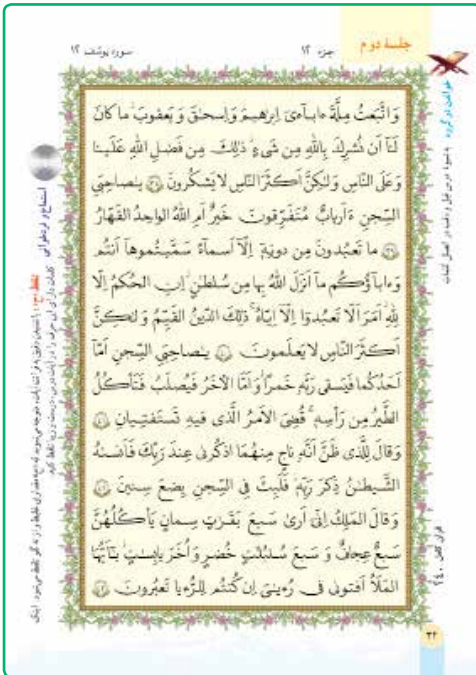 جلسهٔ دوم
جزء ۱۲
سوره یوسف ۱۲
وَاتَّبَعتُ مِلَّةَ ءابـآءی اِبرٰهیمَ وَ اِسحـٰقَ وَ یَعقوبَ ما کانَ
لَنآ اَن نُشرِكَ بِاللهِ مِن شَیءٍ ذٰلِكَ مِن فَضلِ اللهِ عَلَینا
وَ عَلَی النّاسِ وَلـٰکِنَّ اَکثَرَ النّاسِ لا یَشکُرونَ ﴿۳۸﴾ یـٰصاحِبَیِ
السِّجنِ ءَاَربابٌ مُتَفَرِّقونَ خَیرٌ اَمِ اللهُ الواحِدُ القَهّارُ
﴿۳۹﴾ ما تَعبُدونَ مِن دونِهٓ اِلّآ اَسمآءً سَمَّیتُموهآ اَنتُم
وَ ءابآؤُکُم مآ اَنزَلَ اللهُ بِها مِن سُلطـٰنٍ اِنِ الحُکمُ اِلّا
لِلّٰهِ اَمَرَ اَلّا تَعبُدوٓا اِلّآ اِیّاهُ ذٰلِكَ الدّینُ القَیِّمُ وَلـٰکِنَّ
اَکثَرَ النّاسِ لا یَعلَمونَ ﴿۴۰﴾ یـٰصاحِبَیِ السِّجنِ اَمّآ
اَحَدُکُما فَیَسقی رَبَّهٗ خَمرًا وَ اَمَّا الآخَرُ فَیُصلَبُ فَتَأکُلُ
الطَّیرُ مِن رَأسِهٖ قُضِیَ الاَمرُ الَّذی فیهِ تَستَفتِیانِ ﴿۴۱﴾
وَ قالَ لِلَّذی ظَنَّ اَنَّهٗ ناجٍ مِنهُمَا اذکُرنی عِندَ رَبِّكَ فَاَنسـٰهُ
الشَّیطـٰنُ ذِکرَ رَبِّهٖ فَلَبِثَ فِی السِّجنِ بِضعَ سِنینَ ﴿۴۲﴾
وَ قالَ المَلِكُ اِنّیٓ اَریٰ سَبعَ بَقَرٰتٍ سِمانٍ یَأکُلُهُنَّ
سَبعٌ عِجافٌ وَ سَبعَ سُنبُلـٰتٍ خُضرٍ وَ اُخَرَ یابِسـٰتٍ یـٰٓاَیُّهَا
المَلَاُ اَفتونی فی رُءیـٰیَ اِن کُنتُم لِلرُّءیا تَعبُرونَ ﴿۴۳﴾
استماع و هم‌خوانی
۲۴۰
۳۲